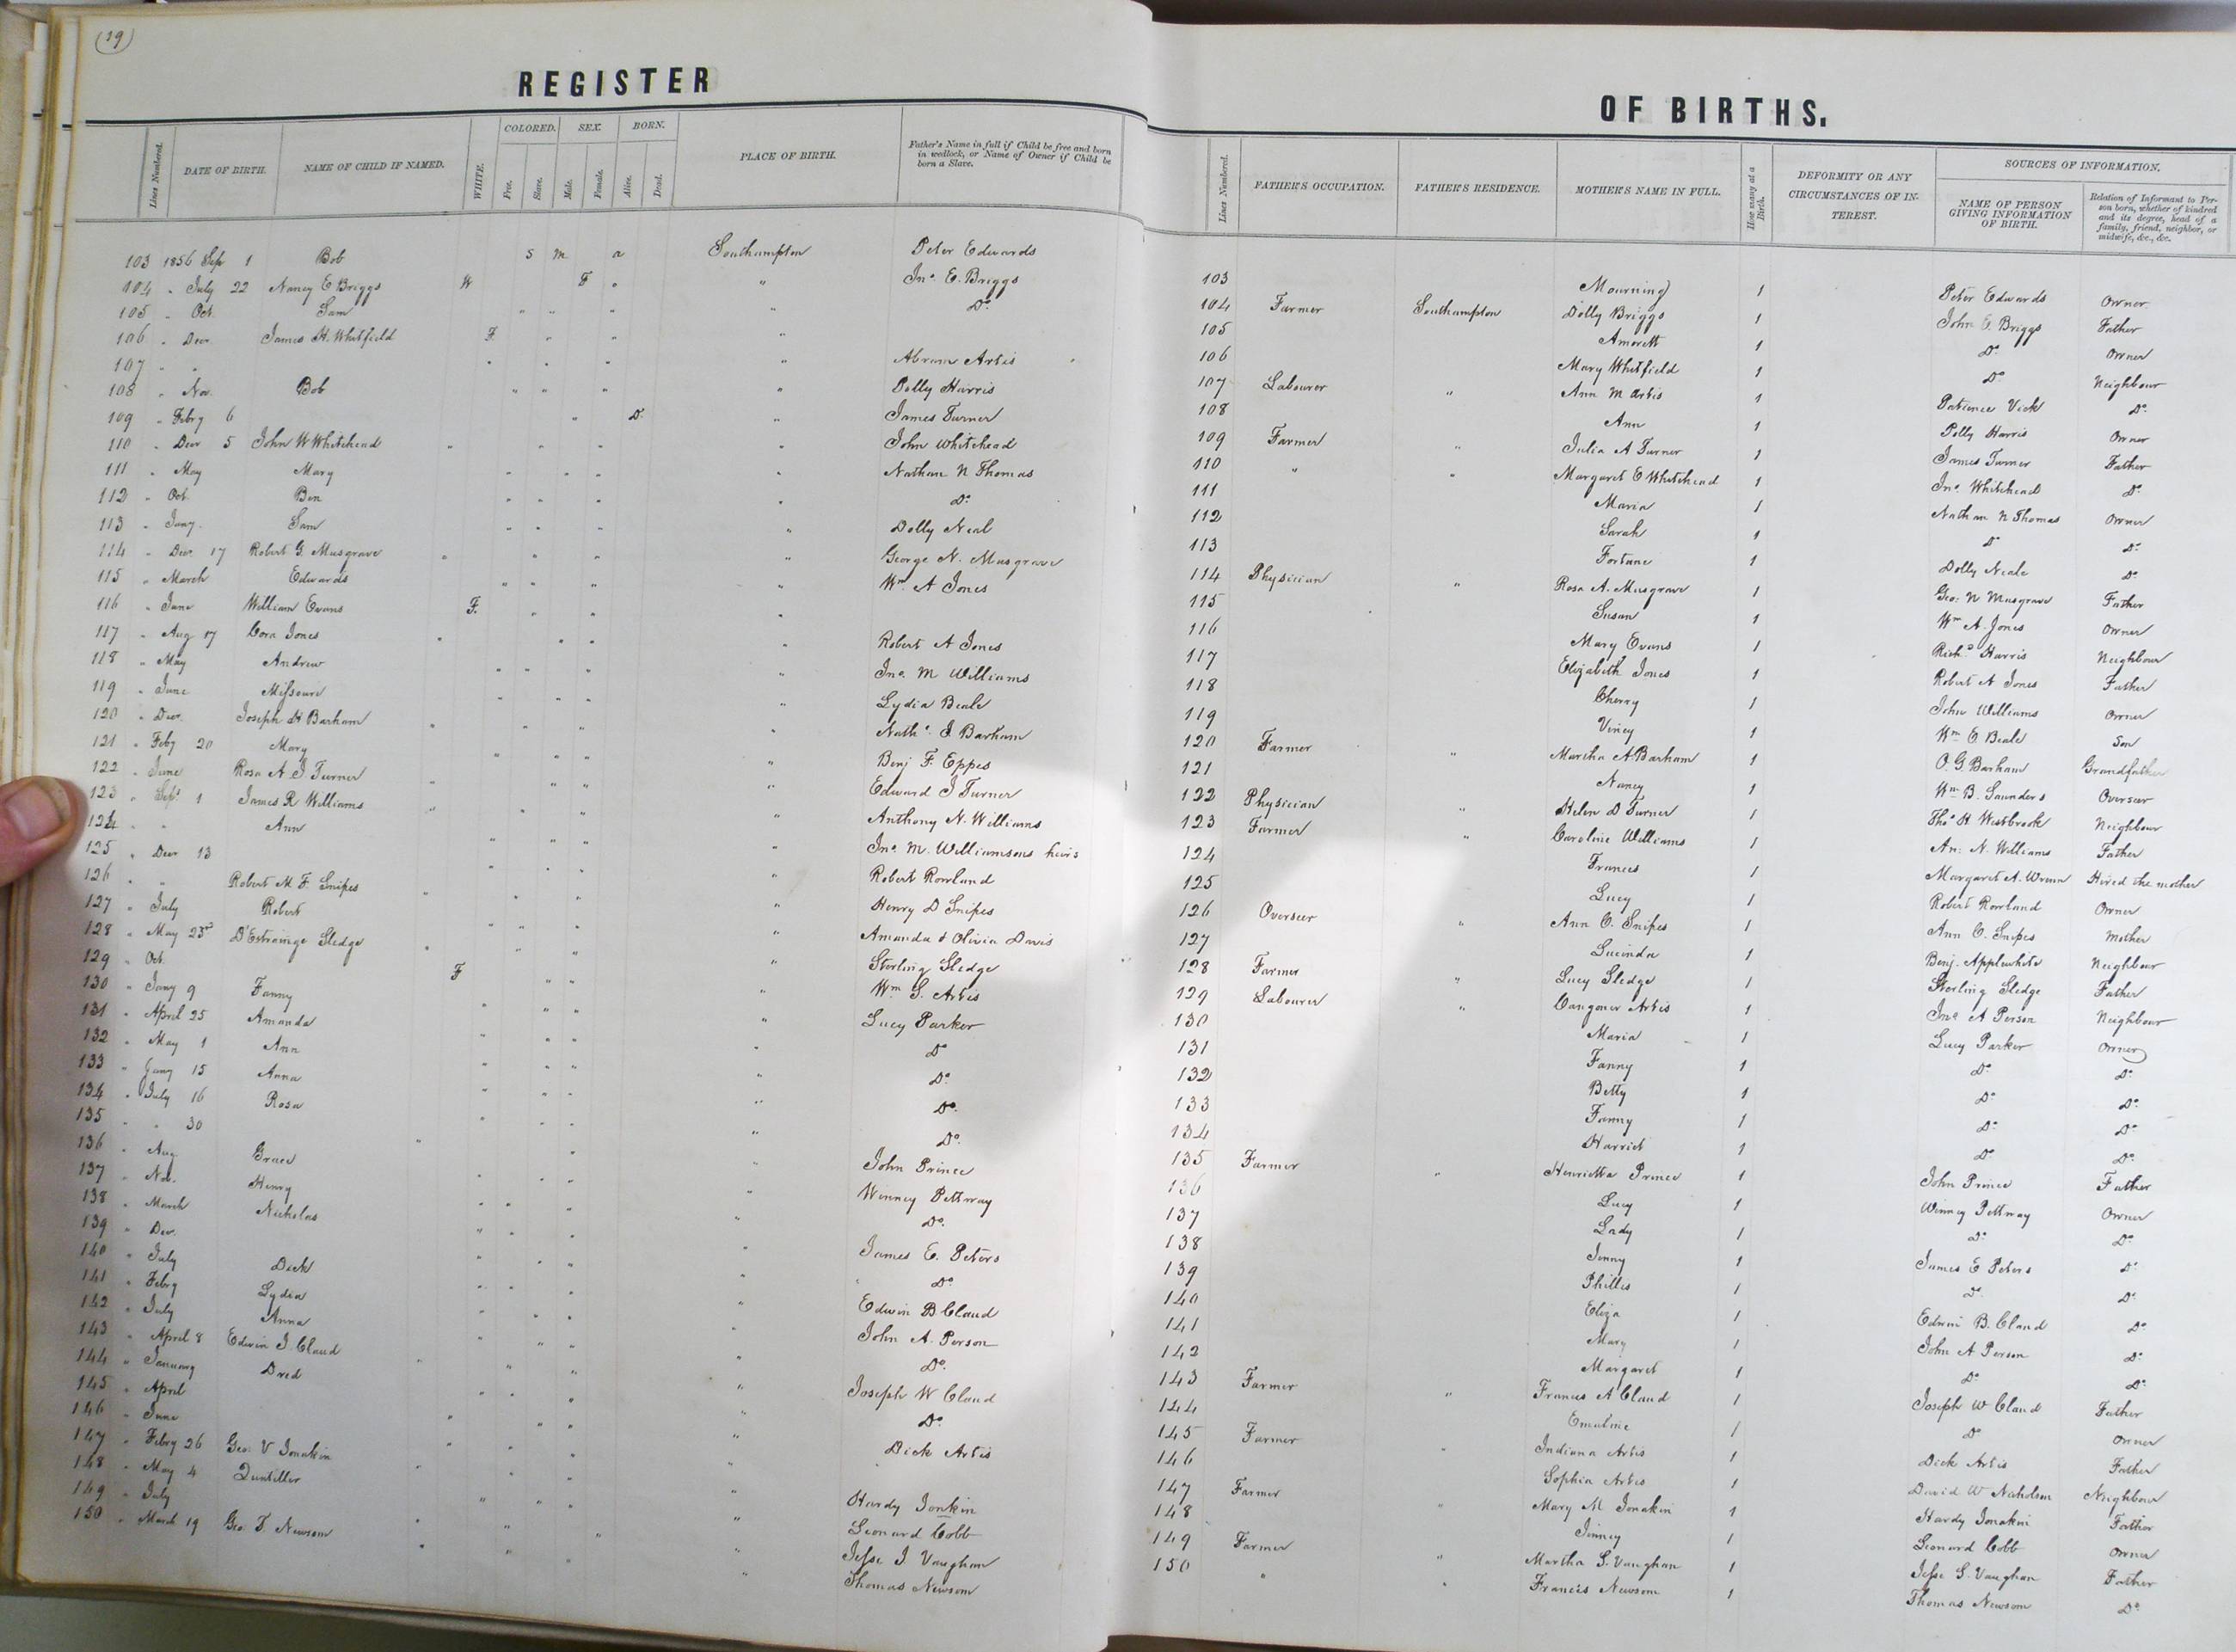 (19)
REGISTER
Lines Numbered. DATE OF BIRTH. NAME OF CHILD IF NAMED. WHITE. COLORED. Free. Slave. SEX. Male. Female. BORN. Alive. Dead. PLACE OF BIRTH. Father's Name in full if Child be free and born in wedlock, or Name of Owner if Child be born a Slave.
103 1856 Sep 1 Bob S m a Southampton Peter Edwards
104 " July 22 Nancy E Briggs W F " " Jno. E. Briggs
105 " Oct. Sam " " " " Do
106 " Decr. James H. Whitfield F " " "
107 " " " " " " Abram Artis
108 " Nov. Bob " " " " Polly Harris
109 " Feby 6 " D James Turner
110 " Decr 5 John W Whitehead " " " " John Whitehead
111 " May Mary " " " " Nathan N Thomas
112 " Oct. Ben " " " " Do
113 " Jany. Sam " " " " Dolly Neal
114 " Decr 17 Robert G. Musgrave " " " " George N. Musgrave
115 " March Edwards " " " " Wm A Jones
116 " June William Evans F. " " "
117 " Aug 17 Cora Jones " " " " Robert A Jones
118 " May Andrew " " " " Jno. M Williams
119 " June Missouri " " " " Lydia Beale
120 " Decr. Joseph H Barham " " " " Nathl. J Barham
121 " Feby 20 Mary " " " " Benj F. Eppes
122 " June Rosa A. J. Turner " " " " Edward J Turner
123 " Sept 1 James R Williams " " " " Anthony N. Williams
124 " " Ann " " " " Jno. M. Williamsons heirs
125 " Decr 13 " " " " Robert Rowland
126 " " Robert M F. Snipes " " " " Henry D Snipes
127 " July Robert " " " " Amanda & Olivia Davis
128 " May 23rd D'Estrainge Sledge " " " " Sterling Sledge
129 " Oct. F " " " Wm S. Artis
130 " Jany 9 Fanny " " " " Lucy Parker
131 " April 25 Amanda " " " " Do
132 " May 1 Ann " " " " Do
133 " Jany 15 Anna " " " " Do
134 " July 16 Rosa " " " " Do
135 " " 30 " " " John Prince
136 " Aug Grace " " " " Winney Pettway
137 " Nov. Henry " " " " Do
138 " March Nicholas " " " " James E. Peters
139 " Dec. " " " " Do
140 " July Dick " " " " Edwin B Claud
141 " Feby Lydia " " " " John A. Person
142 " July Anna " " " " Do
143 " April 8 Edwin J. Claud " " " " Joseph W Claud
144 " January Dred " " " " Do
145 " April " " " " Dick Artis
146 " June " " " "
147 " Feby 26 Geo. V Jonakin " " " " Hardy Jonkin
148 " May 4 " " " " Leonard Cobb
149 " July " " " " Jesse J. Vaughan
150 " March 19 Geo. T. Newsom " " " " Thomas Newsom
OF BIRTHS.
Lines Numbered. FATHER'S OCCUPATION. FATHER'S RESIDENCE. MOTHER'S NAME IN FULL. How many at a Birth. DEFORMITY OR ANY CIRCUMSTANCES OF INTEREST. SOURCES OF INFORMATION. NAME OF PERSON GIVING INFORMATION OF BIRTH. Relation of Informant to Person born, whether of kindred and its degree, head of a family, friend, neighbor, or midwife, &c., &c.
103 Mourning 1 Peter Edwards Owner
104 Farmer Southampton Dolly Briggs 1 John E. Briggs Father
105 Amorett 1 Do Owner
106 Mary Whitfield 1 Do Neighbour
107 Labourer " Ann M Artis 1 Patience Vick Do
108 Ann 1 Polly Harris Owner
109 Farmer " Julia A Turner 1 James Turner Father
110 " " Margaret E Whitehead 1 Jno. Whitehead Do
111 Maria 1 Nathan N Thomas Owner
112 Sarah 1 Do Do
113 Fortune 1 Dolly Neale Do
114 Physician " Rosa A. Musgrave 1 Geo: N Musgrave Father
115 Susan 1 Wm A. Jones Owner
116 Mary Evans 1 Richd. Harris Neighbour
117 Elizabeth Jones 1 Robert A Jones Father
118 Cherry 1 John Williams Owner
119 Viney 1 Wm E Beale Son
120 Farmer " Martha A Barham 1 O. G. Barham Grandfather
121 Nancy 1 Wm B. Saunders Overseer
122 Physician " Helen D Turner 1 Thos. H. Westbrook Neighbour
123 Farmer " Caroline Williams 1 An: N. Williams Father
124 Frances 1 Margaret A. Wrenn Hired the mother
125 Lucy 1 Robert Rowland Owner
126 Overseer " Ann C. Snipes 1 Ann C. Snipes Mother
127 Lucinda 1 Benj. Applewhite Neighbour
128 Farmer " Lucy Sledge 1 Sterling Sledge Father
129 Labourer " Artis 1 Jno. A Person Neighbour
130 Maria 1 Lucy Parker Owner
131 Fanny 1 Do Do
132 Betty 1 Do Do
133 Fanny 1 Do Do
134 Harriet 1 Do Do
135 Farmer " Henrietta Prince 1 John Prince Father
136 Lucy 1 Winney Pettway Owner
137 Lady 1 Do Do
138 Jenny 1 James E Peters Do
139 Phillis 1 Do Do
140 Eliza 1 Edwin B. Claud Do
141 Mary 1 John A Person Do
142 Margaret 1 Do Do
143 Farmer " Frances A Claud 1 Joseph W Claud Father
144 Emaline 1 Do Owner
145 Farmer " Indiana Artis 1 Dick Artis Father
146 Sophia Artis 1 David W Nicholson Neighbour
147 Farmer " Mary M Jonakin 1 Hardy Jonakin Father
148 Jinney 1 Leonard Cobb Owner
149 Farmer " Martha S. Vaughan 1 Jesse S. Vaughan Father
150 " " Frances Newsom 1 Thomas Newsom Do